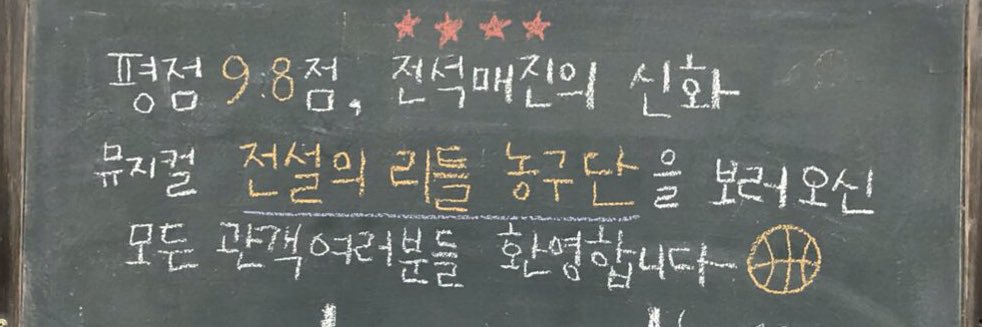 평점 9.8점, 전석매진의 신화
뮤지컬 전설의 리틀 농구단을 보러오신
모든 관객여러분들 환영합니다~